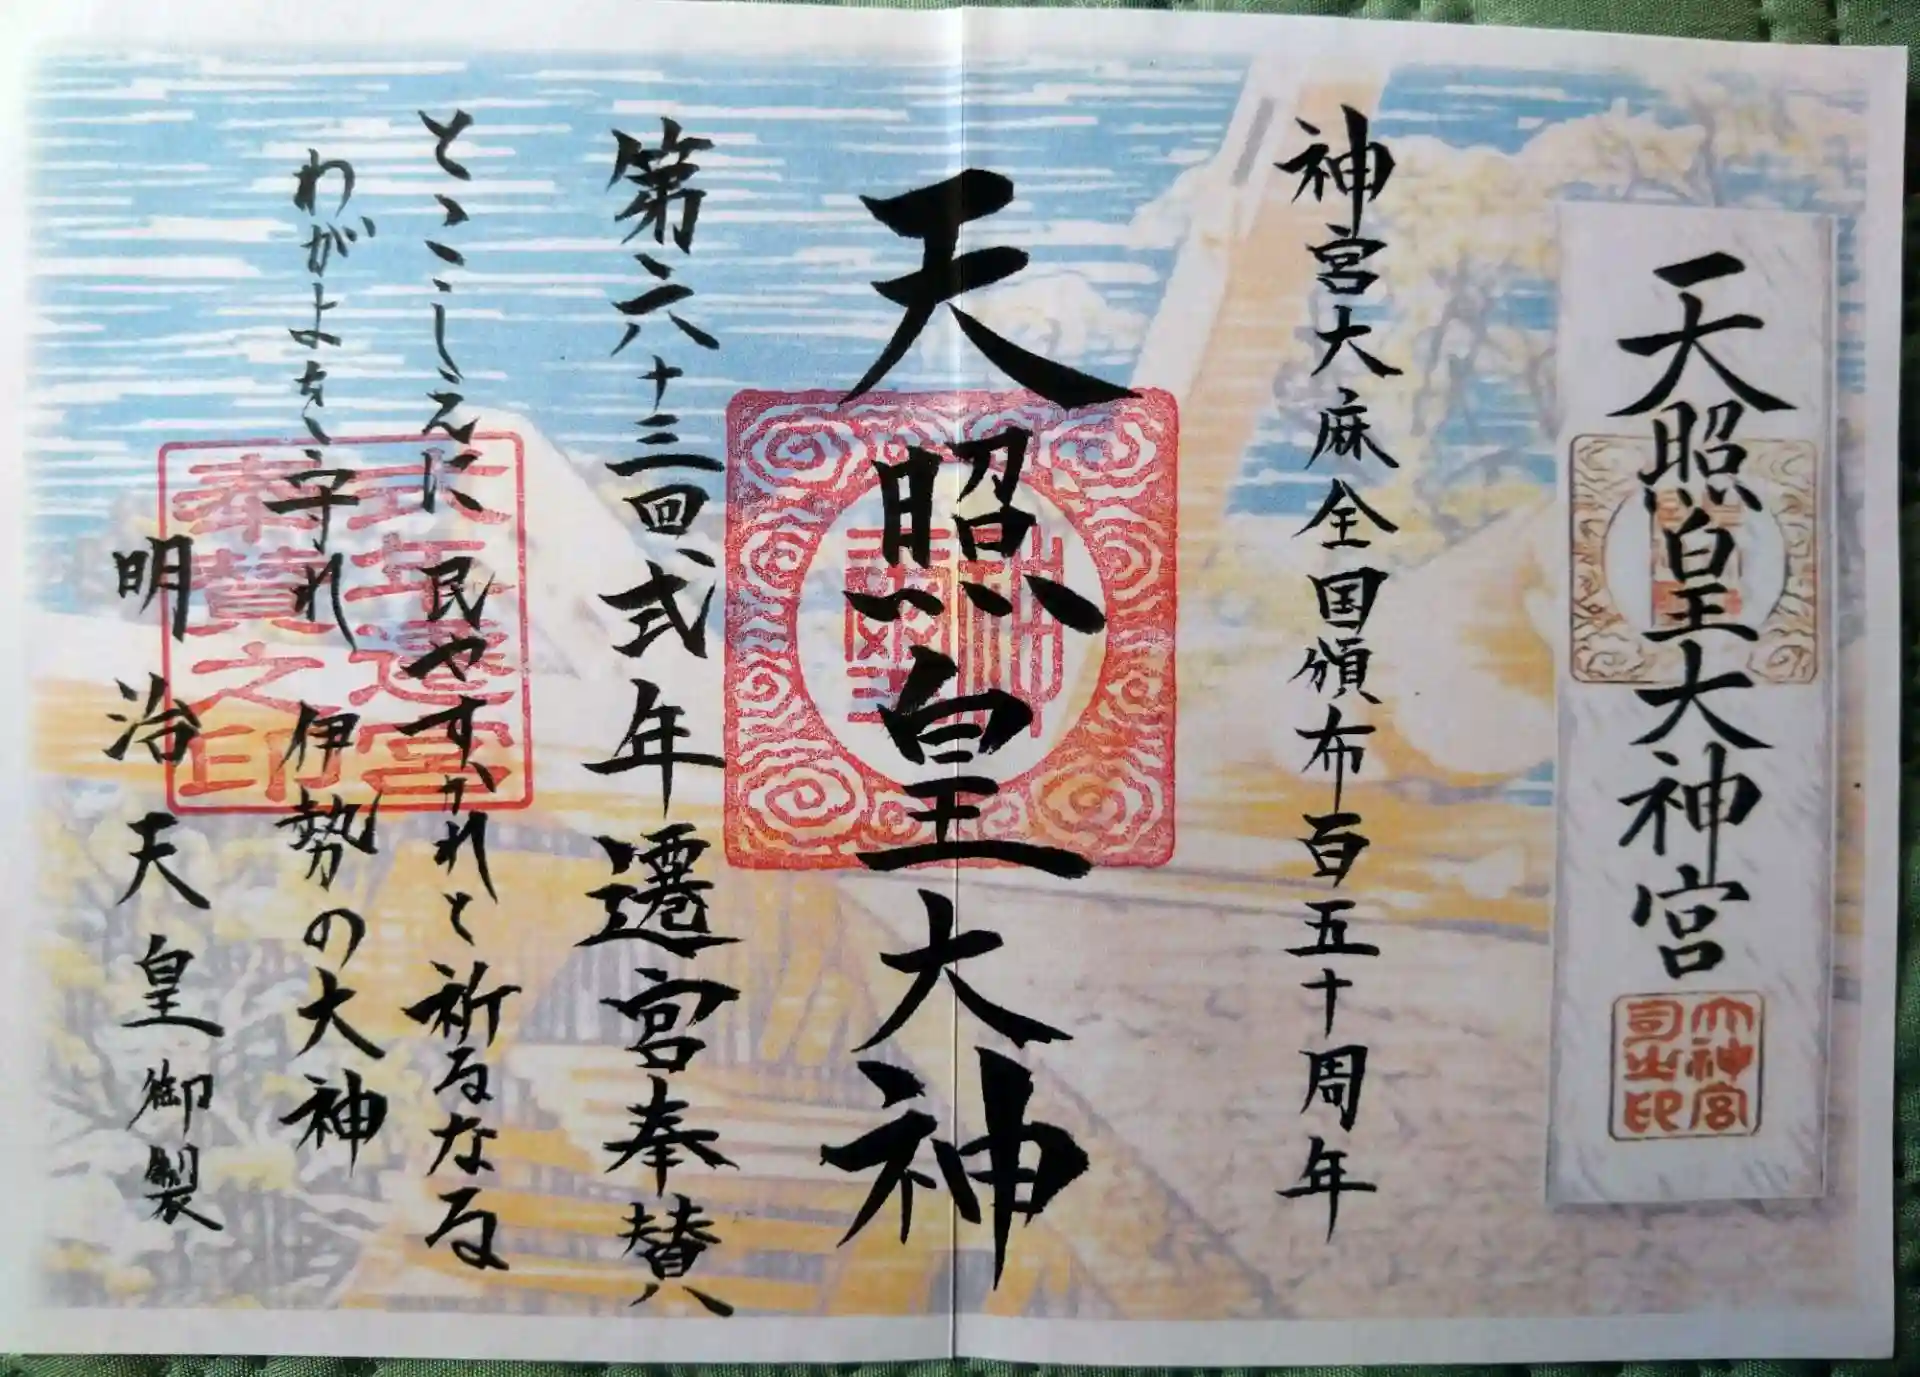 天照皇大神宮
大神宮司之印
神宮大麻全国頒布百五十周年
天照皇大神
第六十三回式年遷宮奉賛
とこしえに 民やすかれと 祈るなる
わがよを守れ 伊勢の大神
明治天皇御製
式年遷宮奉賛之印